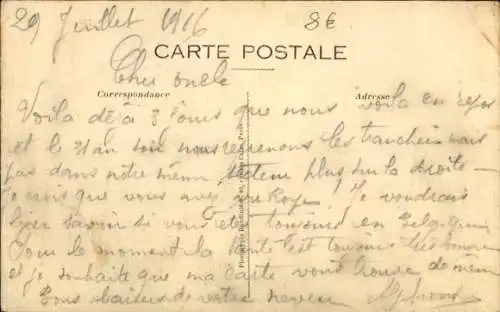 29 Juillet 1916
8€
CARTE POSTALE
Cher oncle
Correspondance
Adresse
Voila déjà 3 jours que nous voila en repos
et le 31 au soir nous reprenons les tranchées mais
pas dans notre même secteur plus sur la droite
je crois que vous avez vu Roye. Je voudrais
savoir si vous êtes toujours en Belgique
Pour le moment la santé est toujours très bonne
et je souhaite que ma carte vous trouve de même
Bons baisers de votre neveu